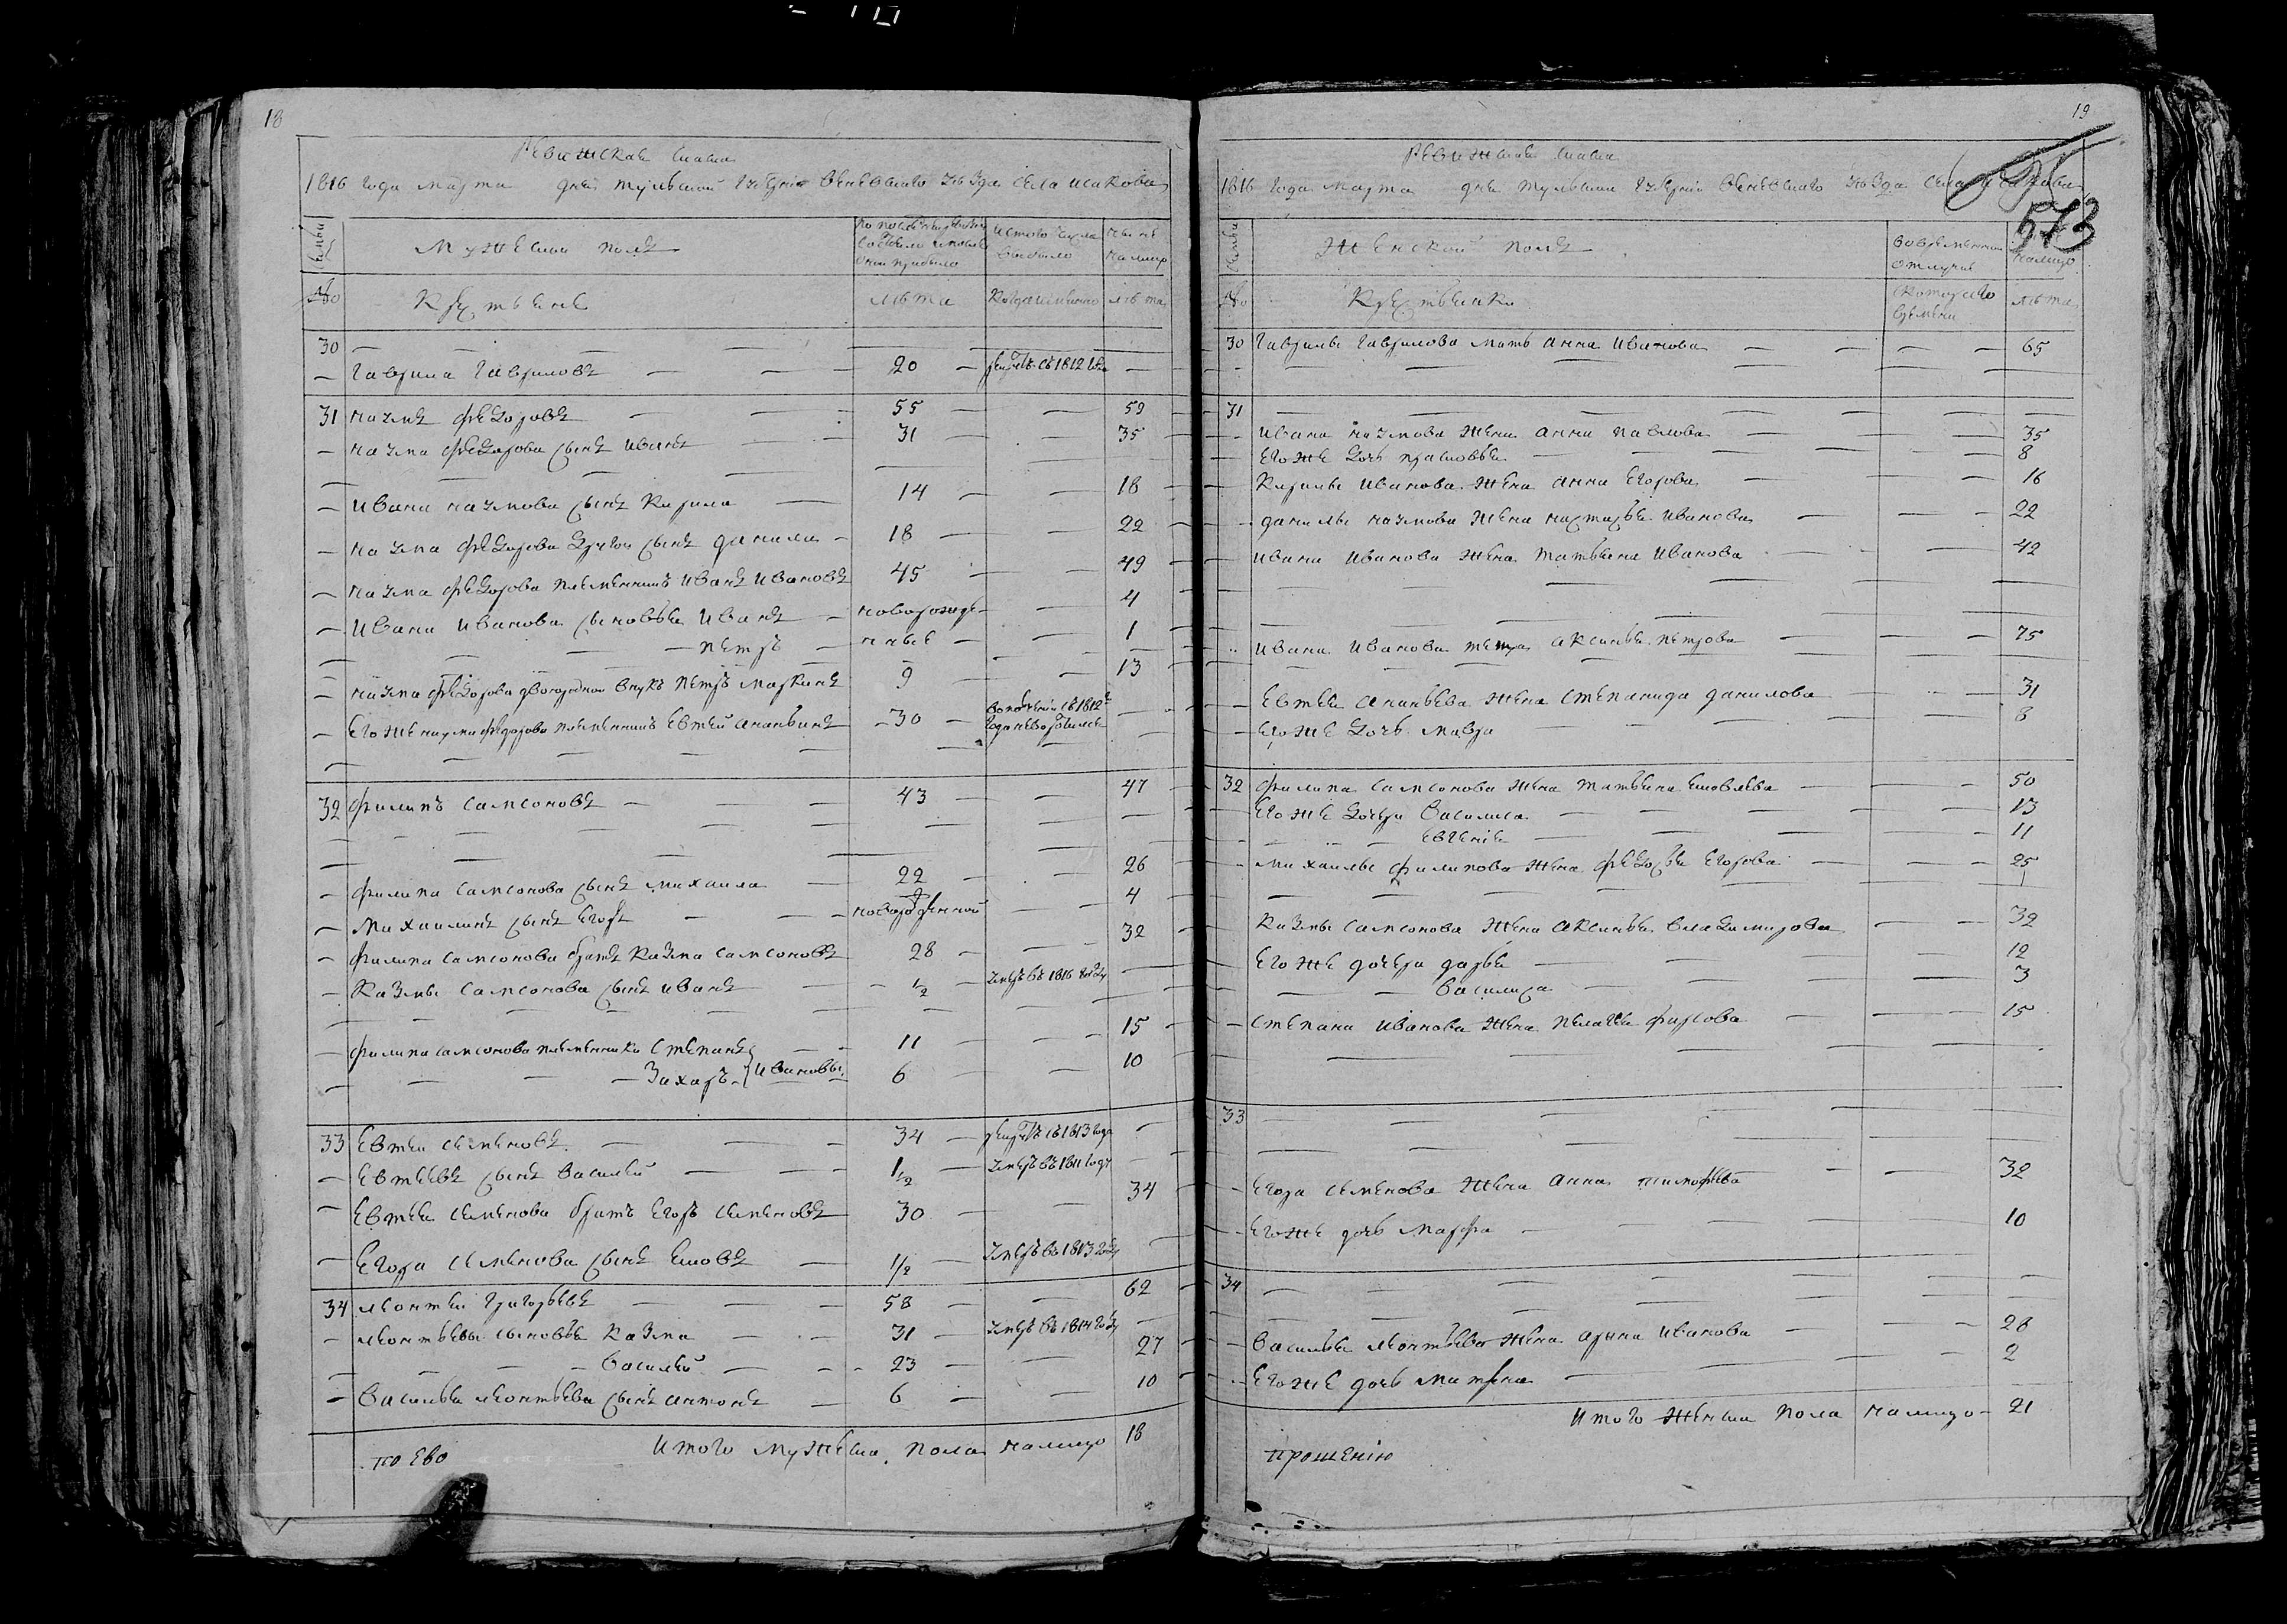 18
Ревижская скаска
1816 года марта дня тульской губернии веневскаго уезда села исакова
семьи
Мужескои полъ
По последней ревизии состояло и после оной прибыло
Истого числа выбыло
Ныне налицо
№
Крестьяне
лѣта
Когда именно
лѣта
30
Гаврила Гавриловъ 20 рекрутъ съ 1812 года
31 наумъ Федоровъ 55 59
наума Федорова сынъ иванъ 31 35
ивана наумова сынъ Кирила 14 18
наума Федорова другои сынъ данила 18 22
наума Федорова племенникъ иванъ ивановъ 45 49
ивана иванова сыновья иванъ новорожде 4
петръ нные 1
наума Федорова двоюродной внукъ петръ маркинъ 9 13
его же наума Федорова племенникъ Евтей ананьинъ 30 вополчении съ 1812 года невозвратился
32 Филипъ самсоновъ 43 47
Филипа самсонова сынъ михаила 22 26
михаилинъ сынъ Егоръ новорожденной 4
Филипа самсонова братъ Казма самсоновъ 28 32
Казмы самсонова сынъ иванъ 1/2 умеръ въ 1816 году
Филипа самсонова племенники Степанъ 11 15
Захаръ ивановы 6 10
33 Евтеи семеновъ 34 рекрутъ съ 1813 года
Евтеевъ сынъ василей 1 1/2 умеръ въ 1811 году
Евтея семенова братъ Егоръ семеновъ 30 34
Егора семенова сынъ Ековъ 1/2 умеръ въ 1813 году
34 леонтеи григорьевъ 58 62
леонтьевы сыновья Казма 31 умеръ въ 1814 году
василей 23 27
василья леонтьева сынъ антонъ 6 10
итого мужеска пола налицо 18
по ево
19
573
Ревижская скаска
1816 года марта дня тульскои губернии веневскаго уезда села исакова
семьи
Женской полъ
вовременной отлучке
налицо
№
Крестьянки
скоторого времени
лѣта
30 гаврилы гаврилова мать анна иванова 65
31
ивана наумова жена анна павлова 35
его же дочь прасковья 8
Кирилы иванова жена анна Егорова 16
данилы наумова жена настасья иванова 22
ивана иванова жена татьяна иванова 42
ивана иванова тетка аксинья петрова 75
Евтея ананьева жена степанида данилова 31
его же дочь мавра 8
32 Филипа самсонова жена татьяна Ековлева 50
его же дочери василиса 13
евгения 11
михаилы Филипова жена Федосья Егорова 25
Казмы самсонова жена аксинья владимирова 32
его же дочери дарья 12
василиса 3
степана иванова жена пелагея фирсова 15
33
Егора семенова жена анна тимофеева 32
его же дочь марфа 10
34
василья леонтьева жена арина иванова 28
его же дочь матрена 2
итого женска пола налицо 21
прошенію